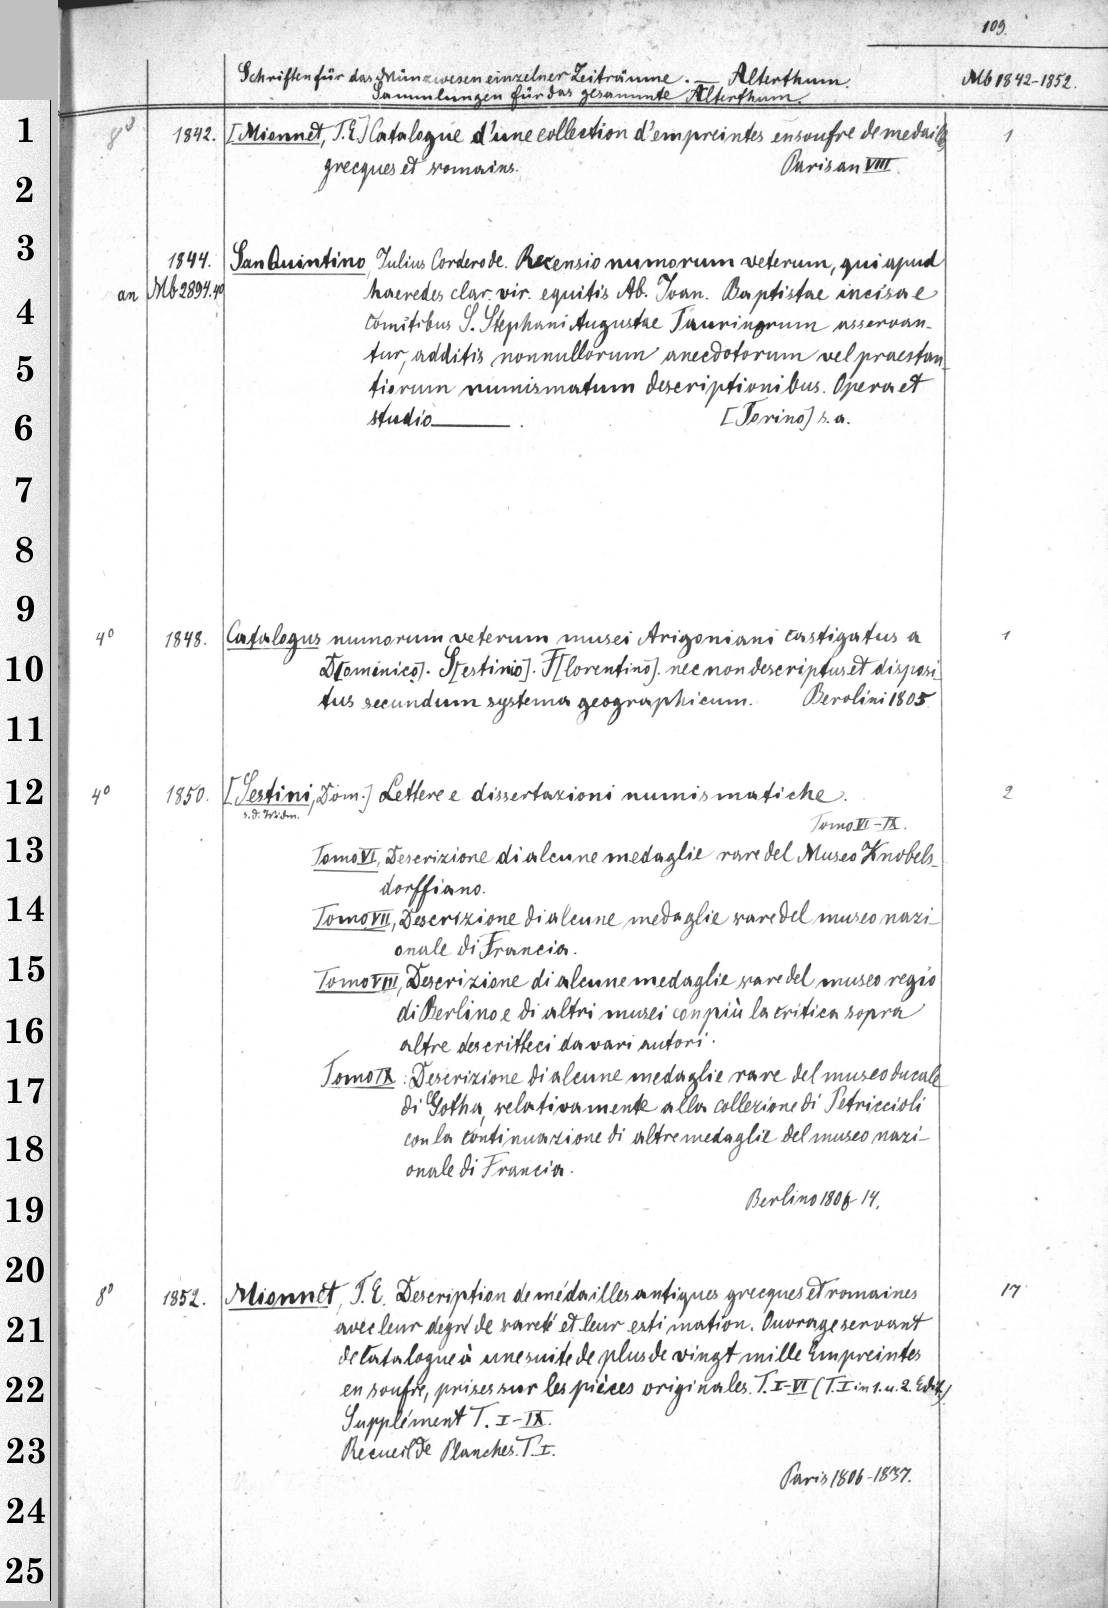 109.
Schriften für das Münzwesen einzelner Zeiträume. — Alterthum.
Mb 1842-1852.
Sammlungen für das gesammte Alterthum.
1 8° 1842. [Mionnet, T. E.] Catalogue d'une collection d'empreintes en soufre de medailles 1
2 grecques et romains. Paris an VIII.
3 1844. San Quintino, Julius Cordero de. Recensio numorum veterum, qui apud
an Mb 2894.4° haeredes clar. vir. equitis Ab. Joan. Baptistae incisae
4 comitibus S. Stephani Augustae Taurinorum asservan-
5 tur, additis nonnullorum anecdotorum vel praestan-
tiorum numismatum descriptionibus. Opera et
6 studio ———. [Torino] s. a.
7
8
9
4° 1848. Catalogus numorum veterum musei Arigoniani castigatus a 1
10 D[omenico]. S[estinio]. F[lorentino]. nec non descriptus et disposi-
11 tus secundum systema geographicum. Berolini 1805.
12 4° 1850. [Sestini, Dom.] Lettere e dissertazioni numismatiche. 2
s. d. Widm.
Tomo VI-IX.
13 Tomo VI, Descrizione di alcune medaglie rare del Museo Knobels-
dorffiano.
14 Tomo VII, Descrizione di alcune medaglie rare del museo nazi-
onale di Francia.
15 Tomo VIII, Descrizione di alcune medaglie rare del museo regio
16 di Berlino e di altri musei con più la critica sopra
altre descritteci da vari autori.
17 Tomo IX: Descrizione di alcune medaglie rare del museo ducale
di Gotha, relativamente alla collezione di Petriccioli
18 con la continuazione di altre medaglie del museo nazi-
onale di Francia.
19 Berlino 1806-14.
20
8° 1852. Mionnet, T. E. Description de médailles antiques grecques et romaines 17
21 avec leur degré de rareté et leur estimation. Ouvrage servant
de Catalogue à une suite de plus de vingt mille Empreintes
22 en soufre, prises sur les pièces originales. T. I-VI (T. I in 1. u. 2. Edit.)
Supplément T. I-IX.
23 Recueil de Planches. T. I.
Paris 1806-1837.
24
25